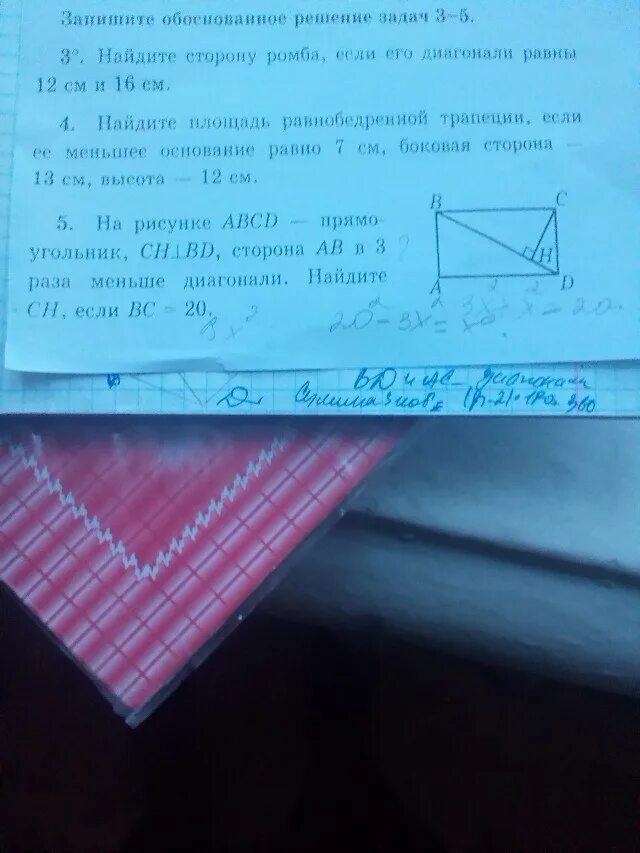 Запишите обоснованное решение задач 3–5.
3°. Найдите сторону ромба, если его диагонали равны
12 см и 16 см.
4. Найдите площадь равнобедренной трапеции, если
ее меньшее основание равно 7 см, боковая сторона —
13 см, высота — 12 см.
5. На рисунке ABCD — прямо-
угольник, CH⊥BD, сторона AB в 3
раза меньше диагонали. Найдите
CH, если BC = 20.
B C
H
A D
20² - 3x² = x²
BD и AC